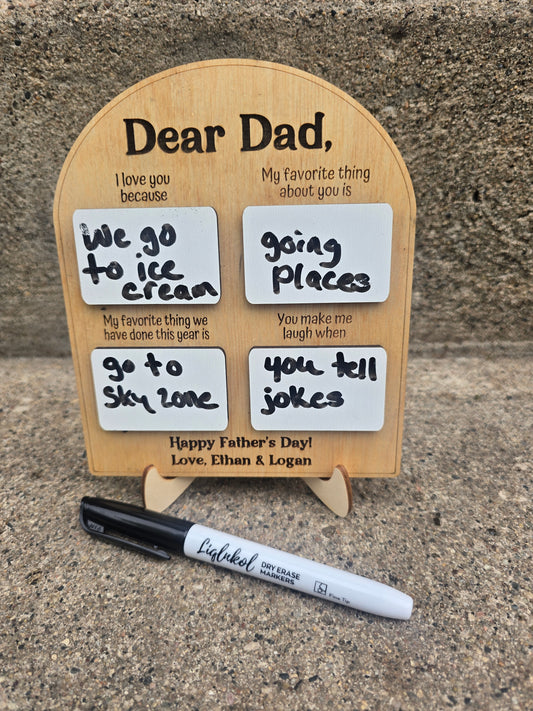 Dear Dad,
I love you
because
My favorite thing
about you is
We go
to ice
cream
going
places
My favorite thing we
have done this year is
You make me
laugh when
go to
sky zone
you tell
jokes
Happy Father's Day!
Love, Ethan & Logan
Liqinkol
DRY ERASE
MARKERS
Fine Tip